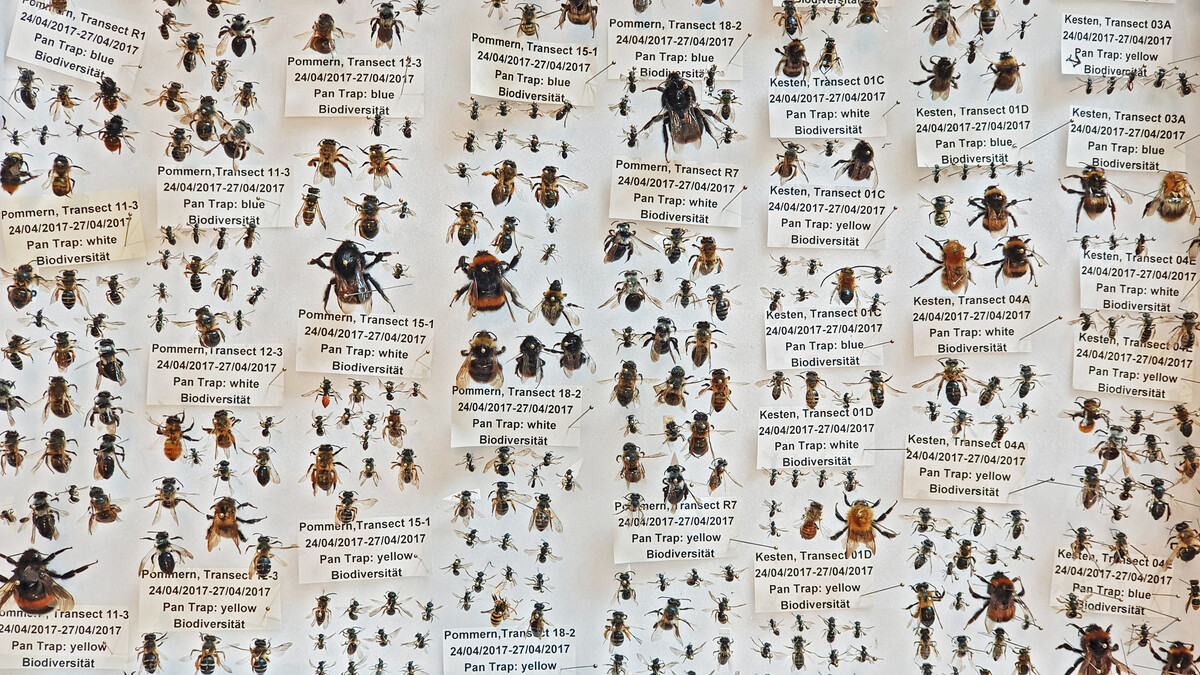 Pommern, Transect R1
24/04/2017-27/04/2017
Pan Trap: blue
Biodiversität
Pommern, Transect 11-3
24/04/2017-27/04/2017
Pan Trap: white
Biodiversität
Transect 11-3
24/04/2017-27/04/2017
Pan Trap: yellow
Biodiversität
Pommern, Transect 11-3
24/04/2017-27/04/2017
Pan Trap: blue
Biodiversität
Pommern, Transect 12-3
24/04/2017-27/04/2017
Pan Trap: white
Biodiversität
Pommern, Transect
24/04/2017-27/04/2017
Pan Trap: yellow
Biodiversität
Pommern, Transect 12-3
24/04/2017-27/04/2017
Pan Trap: blue
Biodiversität
Pommern, Transect 15-1
24/04/2017-27/04/2017
Pan Trap: white
Biodiversität
Pommern,Transect 15-1
24/04/2017-27/04/2017
Pan Trap: yellow
Biodiversität
Pommern, Transect 15-1
24/04/2017-27/04/2017
Pan Trap: blue
Biodiversität
Pommern, Transect 18-2
24/04/2017-27/04/2017
Pan Trap: white
Biodiversität
Pommern, Transect 18-2
24/04/2017-27/04/2017
Pan Trap: yellow
Pommern, Transect 18-2
24/04/2017-27/04/2017
Pan Trap: blue
Biodiversität
Pommern, Transect R7
24/04/2017-27/04/2017
Pan Trap: white
Biodiversität
Pommern, Transect R7
24/04/2017-27/04/2017
Pan Trap: yellow
Biodiversität
Kesten, Transect 01C
24/04/2017-27/04/2017
Pan Trap: white
Biodiversität
Kesten, Transect 01C
24/04/2017-27/04/2017
Pan Trap: yellow
Biodiversität
Kesten, Transect 01C
24/04/2017-27/04/2017
Pan Trap: blue
Biodiversität
Kesten, Transect 01D
24/04/2017-27/04/2017
Pan Trap: white
Biodiversität
Kesten, Transect 01D
24/04/2017-27/04/2017
Pan Trap: yellow
Biodiversität
Kesten, Transect 01D
24/04/2017-27/04/2017
Pan Trap: blue
Biodiversität
Kesten, Transect 04A
24/04/2017-27/04/2017
Pan Trap: white
Biodiversität
Kesten, Transect 04A
24/04/2017-27/04/2017
Pan Trap: yellow
Biodiversität
Kesten, Transect 03A
24/04/2017-27/04/2017
Pan Trap: yellow
Biodiversität
Kesten, Transect 03A
24/04/2017-27/04/2017
Pan Trap: blue
Biodiversität
Kesten, Transect 04E
24/04/2017-27/04/2017
Pan Trap: white
Biodiversität
Kesten, Transect
24/04/2017-27/04/2017
Pan Trap: yellow
Biodiversität
Kesten, Transect
24/04/2017-27/04/2017
Pan Trap: blue
Biodiversität